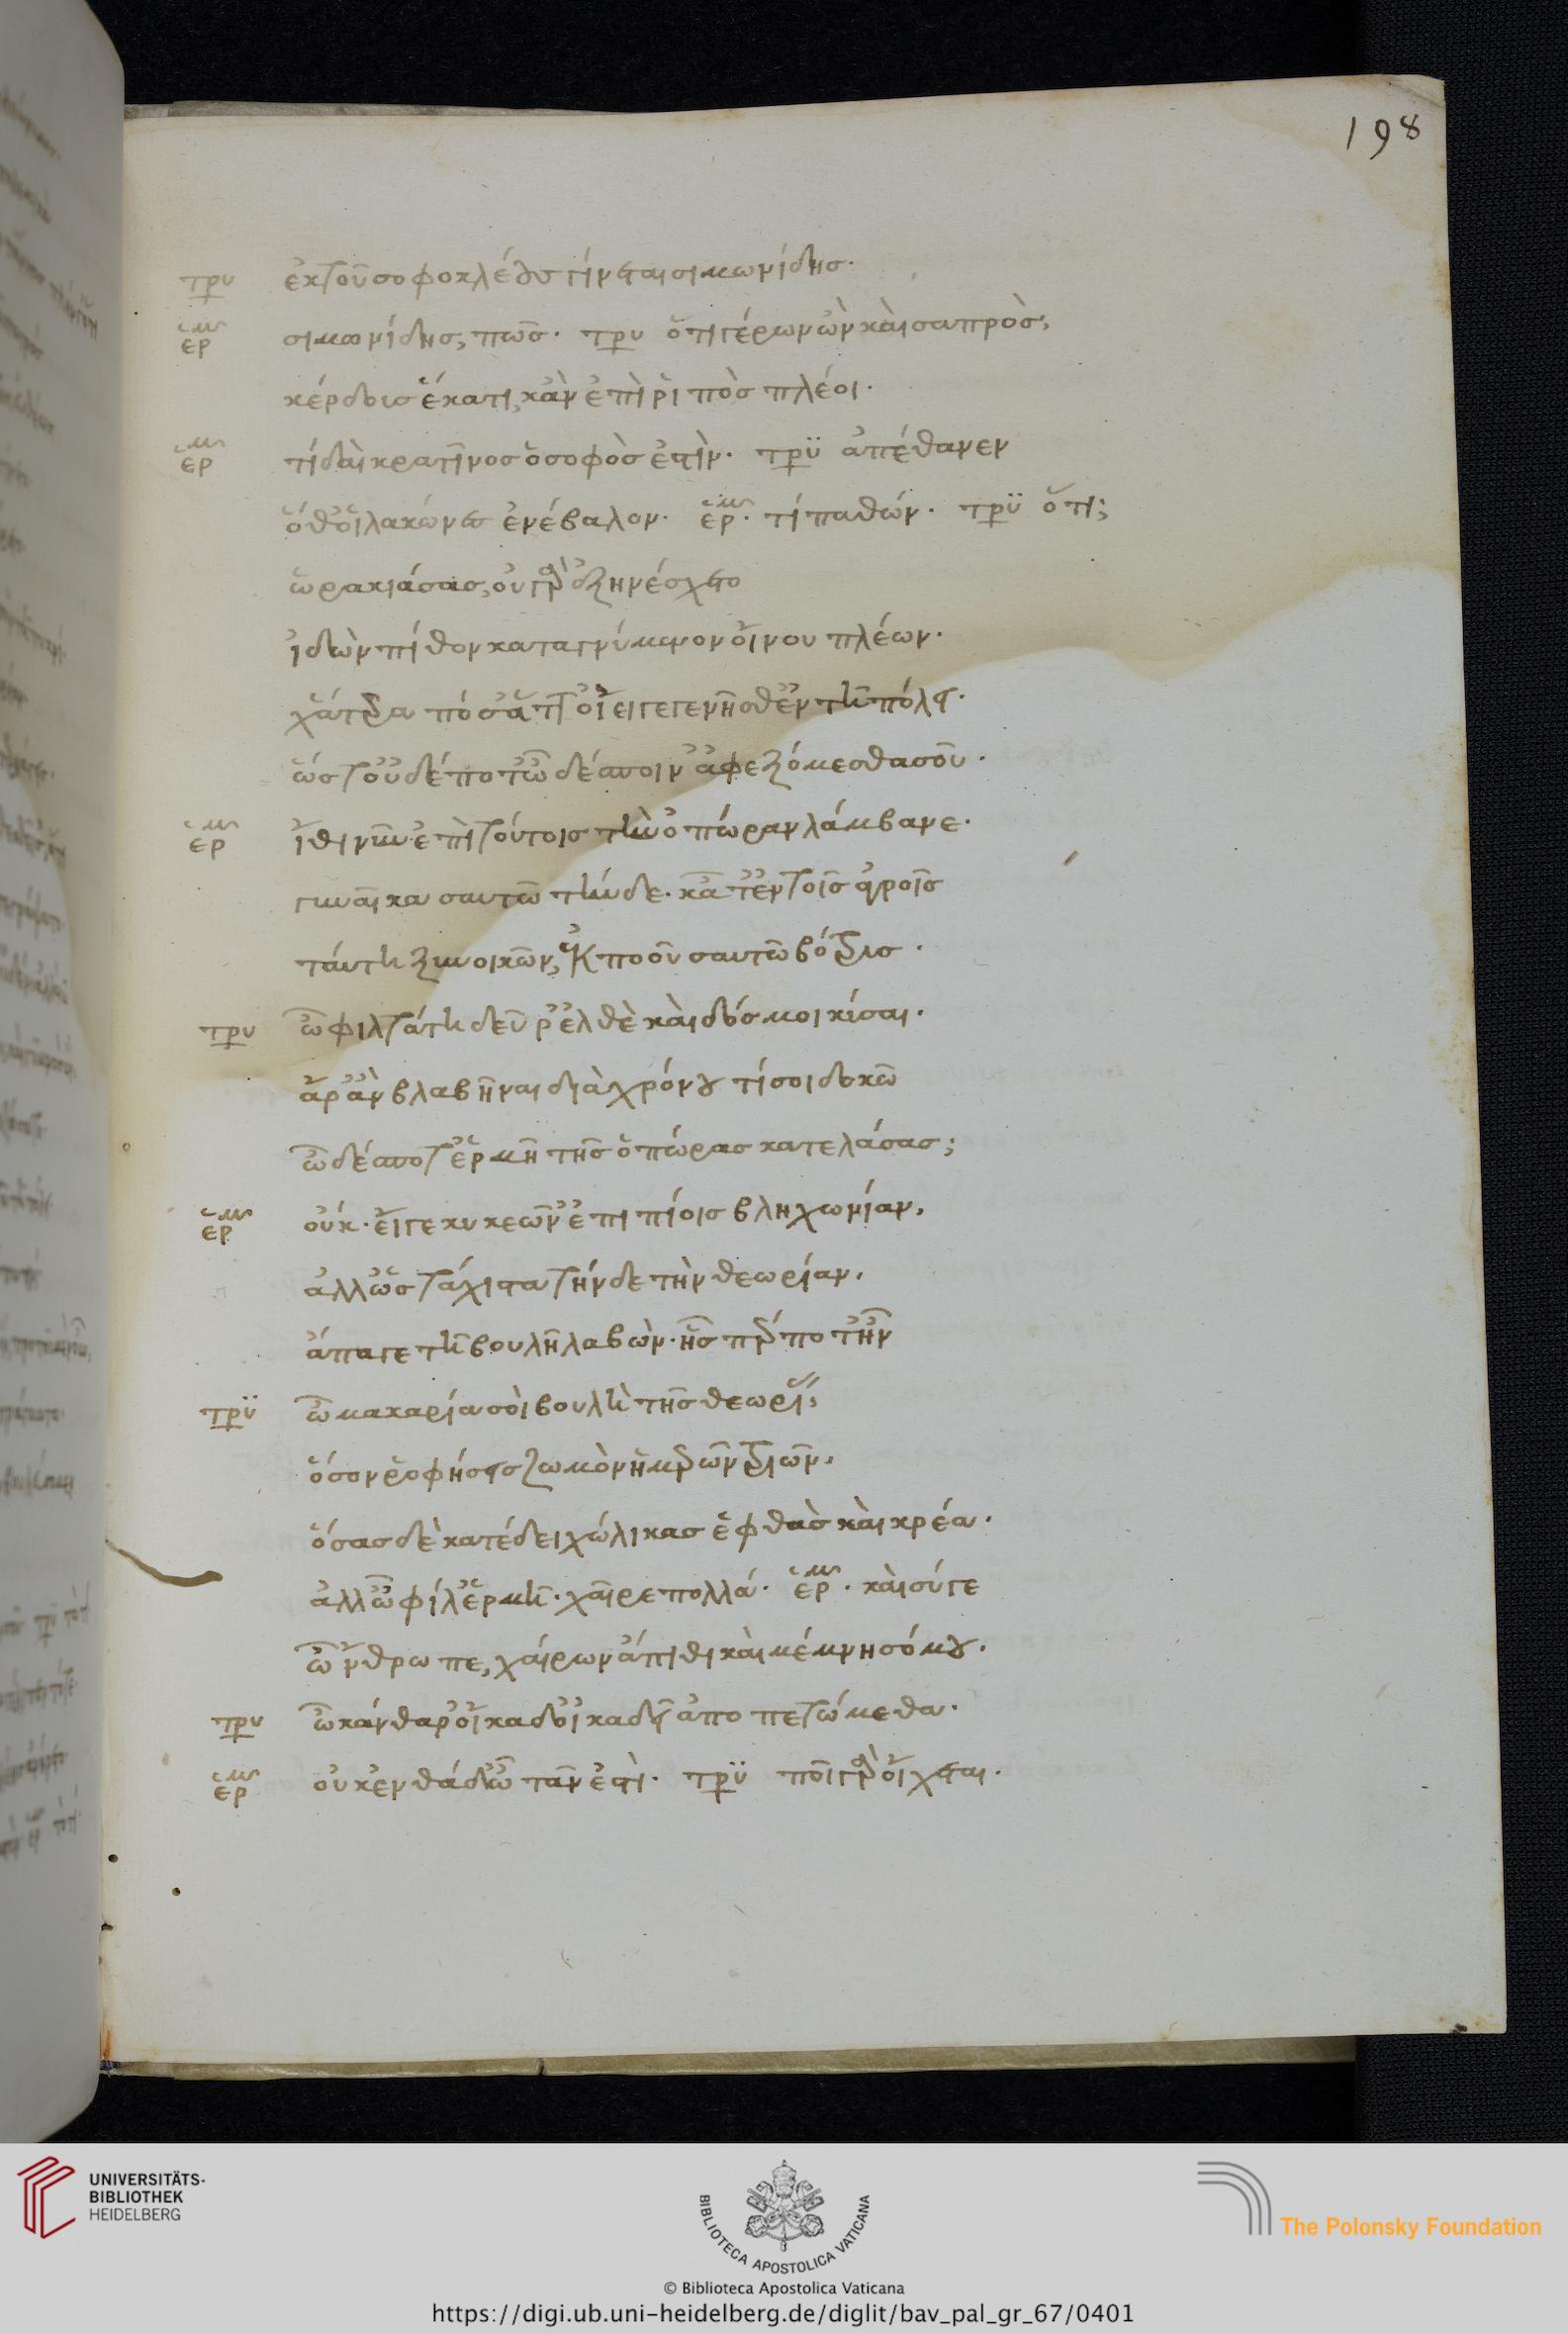 198
τρυ ἐκ τοῦ σοφοκλέους γίνεται σιμωνίδης.
ἑρμ σιμωνίδης; πῶς. τρυ ὅτι γέρων ὢν καὶ σαπρὸς,
κέρδους ἕκατι, κἂν ἐπὶ ῥιπὸς πλέοι.
ἑρμ τί δαὶ κρατῖνος ὁ σοφὸς ἐστὶν. τρυ ἀπέθανεν
ὅθ' οἱ λάκώνες ἐνέβαλον. ἑρμ. τί παθών. τρυ ὅτι;
ὡρακιάσας, οὐ γὰρ ἐξηνέσχετο
ἰδὼν πίθον καταγνύμενον οἴνου πλέων.
χἅτερα πόσ' ἄττ' οἴει γεγενῆσθ' ἐν τῆ πόλει.
ὥστ' οὐδέποτ' ὦ δέσποιν' ἀφεξόμεσθα σοῦ.
ἑρμ ἴθι νῦν ἐπὶ τούτοις τὴν ὀπώραν λάμβανε.
γυναῖκα σαυτῶ τήνδε. κᾆτ' ἐν τοῖς ἀγροῖς
ταύτη ξυνοικῶν, ἐκποοῦ σαυτῶ βότρυς.
τρυ ὦ φιλτάτη δεῦρ' ἐλθὲ καὶ δός μοι κύσαι.
ἆρ' ἂν βλαβῆναι διὰ χρόνου τί σοι δοκῶ
ὦ δέσποτ' ἑρμῆ τῆς ὀπώρας κατελάσας;
ἑρμ οὐκ. εἴγε κυκεῶν' ἐπιπίοις βληχωνίαν,
ἀλλ' ὡς τάχιστα τήνδε τὴν θεωρίαν,
ἄπαγε τῆ βουλῆ λαβὼν. ἧς πέρ ποτ' ἦν
τρυ ὦ μακαρία σὺ βουλὴ τῆς θεωρίας,
ὅσον ῥοφήσεις ζωμὸν ἡμερῶν τριῶν,
ὅσας δὲ κατέδει χόλικας ἑφθὰς καὶ κρέα.
ἀλλ' ὦ φίλ' ἑρμῆ. χαῖρε πολλά. ἑρμ. καὶ σύγε
ὦ 'νθρωπε, χαίρων ἄπιθι καὶ μέμνησό μου.
τρυ ὦ κάνθαρ' οἴκαδ' οἴκαδ' ἀποπετώμεθα.
ἑρμ οὐκ ἐνθάδ' ὦ τᾶν ἐστὶ. τρυ ποῖ γὰρ οἴχεται.
UNIVERSITÄTS-
BIBLIOTHEK
HEIDELBERG
BIBLIOTECA APOSTOLICA VATICANA
The Polonsky Foundation
© Biblioteca Apostolica Vaticana
https://digi.ub.uni-heidelberg.de/diglit/bav_pal_gr_67/0401